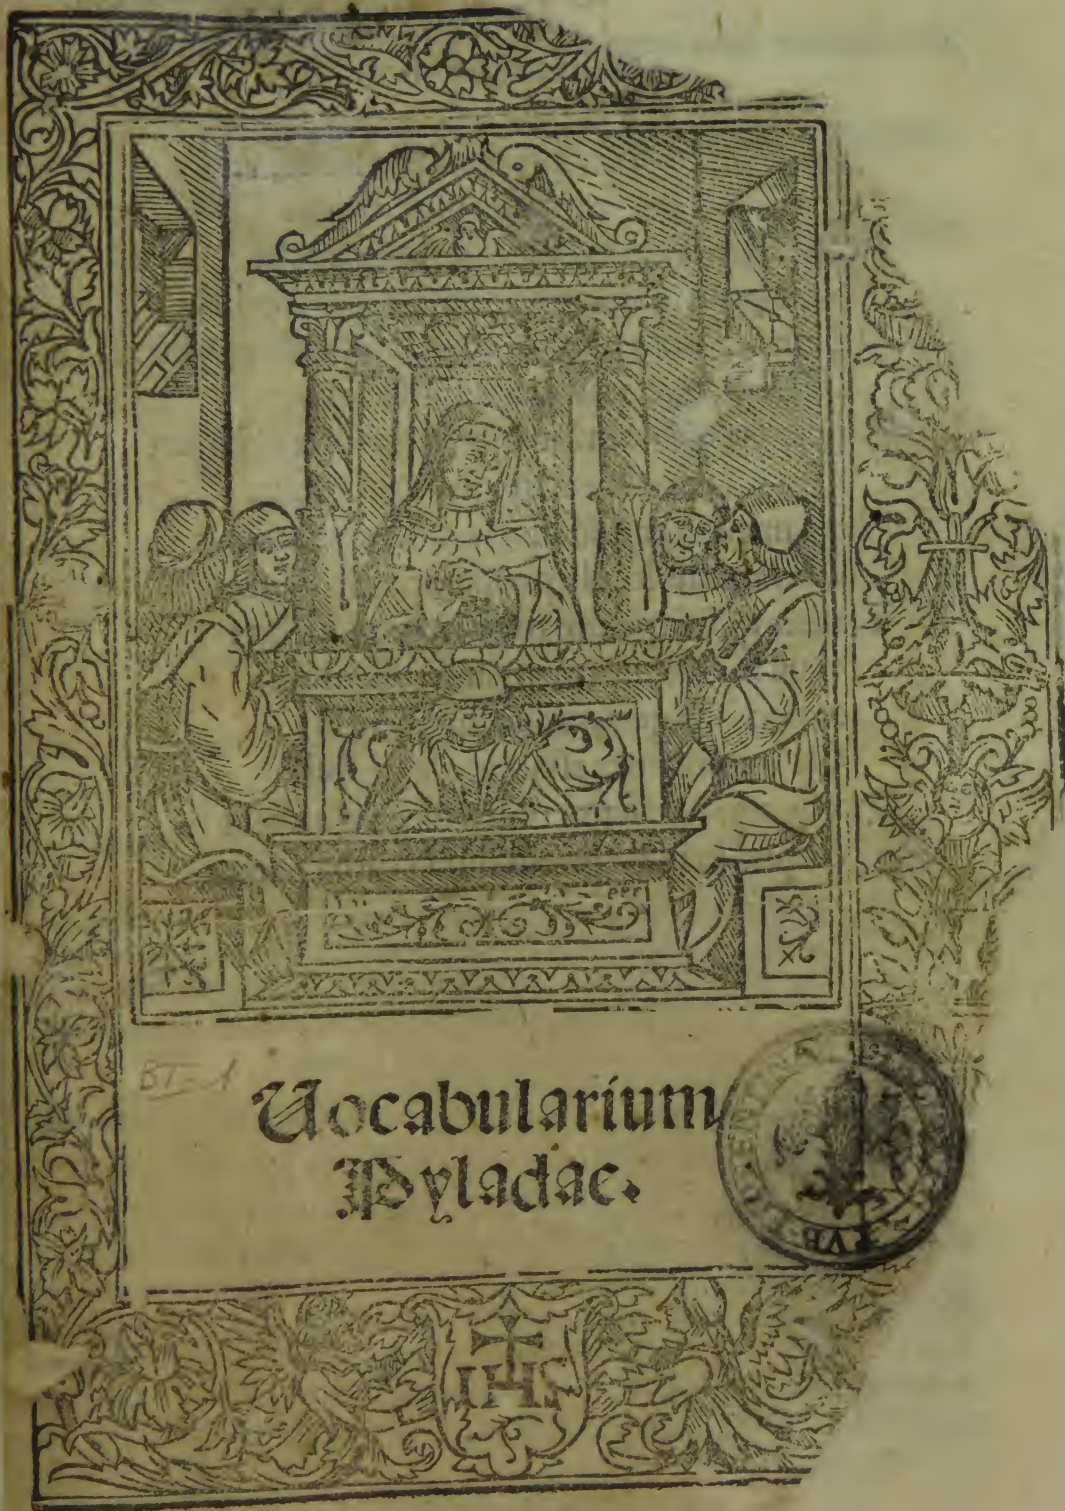 BT-1
Vocabularium
Pyladae.
IHS